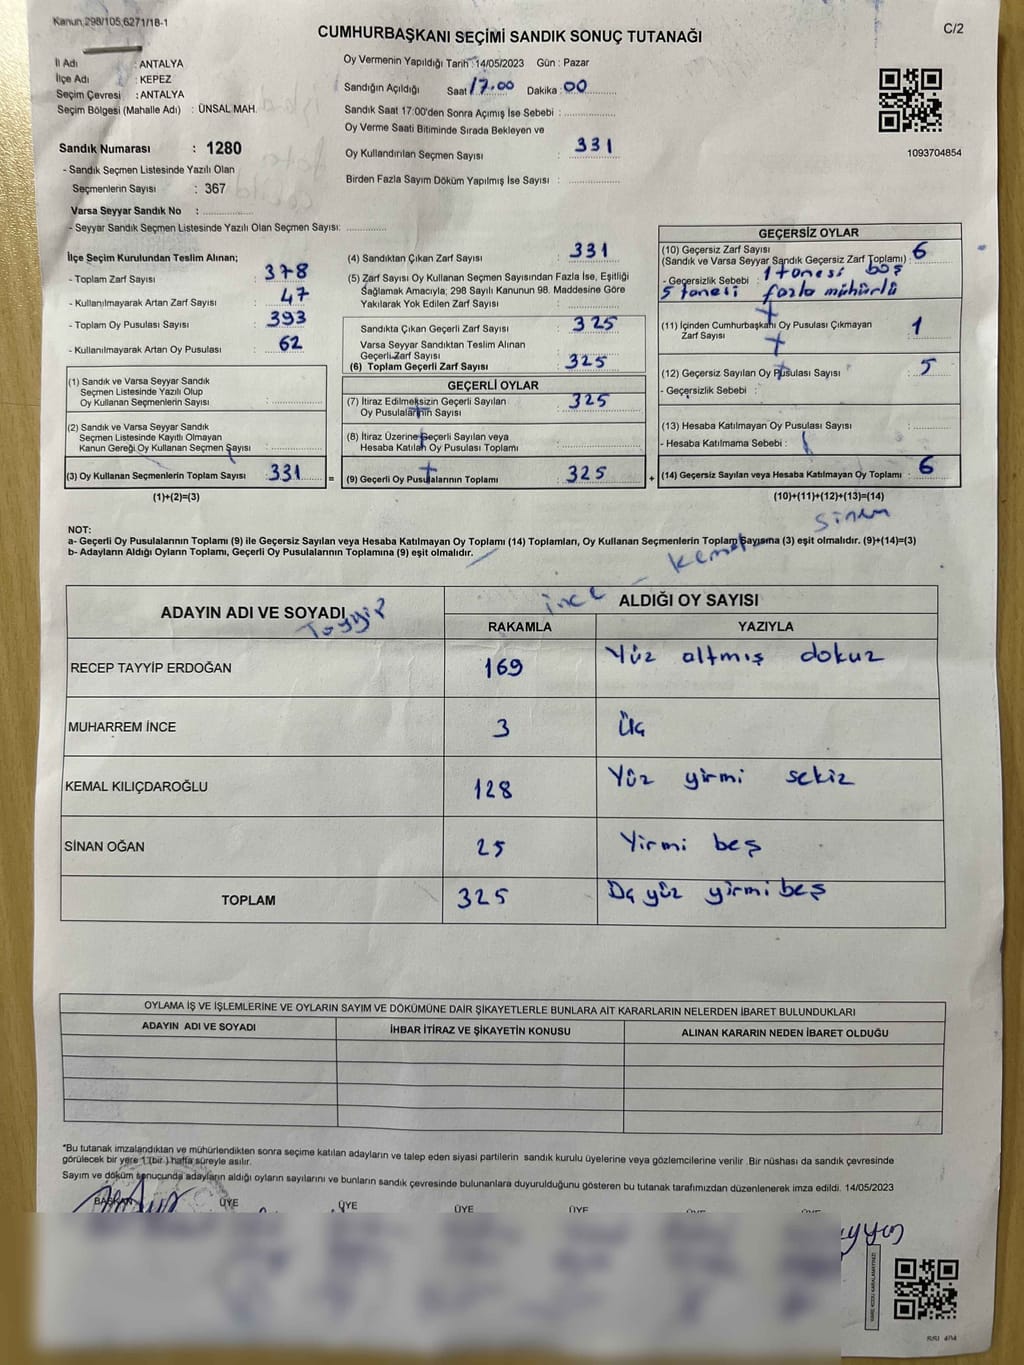 Kanun,298/105,6271/18-1
CUMHURBAŞKANI SEÇİMİ SANDIK SONUÇ TUTANAĞI
C/2
İl Adı : ANTALYA
İlçe Adı : KEPEZ
Seçim Çevresi : ANTALYA
Seçim Bölgesi (Mahalle Adı) : ÜNSAL MAH.
Sandık Numarası : 1280
- Sandık Seçmen Listesinde Yazılı Olan
Seçmenlerin Sayısı : 367
Varsa Seyyar Sandık No :
- Seyyar Sandık Seçmen Listesinde Yazılı Olan Seçmen Sayısı:
Oy Vermenin Yapıldığı Tarih :14/05/2023 Gün : Pazar
Sandığın Açıldığı Saat 17.00 Dakika 00
Sandık Saat 17:00'den Sonra Açımış İse Sebebi :
Oy Verme Saati Bitiminde Sırada Bekleyen ve
Oy Kullandırılan Seçmen Sayısı : 331
Birden Fazla Sayım Döküm Yapılmış İse Sayısı :
1093704854
İlçe Seçim Kurulundan Teslim Alınan;
- Toplam Zarf Sayısı : 378
- Kullanılmayarak Artan Zarf Sayısı : 47
- Toplam Oy Pusulası Sayısı : 393
- Kullanılmayarak Artan Oy Pusulası : 62
(1) Sandık ve Varsa Seyyar Sandık
Seçmen Listesinde Yazılı Olup
Oy Kullanan Seçmenlerin Sayısı :
(2) Sandık ve Varsa Seyyar Sandık
Seçmen Listesinde Kayıtlı Olmayan
Kanun Gereği Oy Kullanan Seçmen Sayısı :
(3) Oy Kullanan Seçmenlerin Toplam Sayısı : 331
(1)+(2)=(3)
(4) Sandıktan Çıkan Zarf Sayısı : 331
(5) Zarf Sayısı Oy Kullanan Seçmen Sayısından Fazla İse, Eşitliği
Sağlamak Amacıyla; 298 Sayılı Kanunun 98. Maddesine Göre
Yakılarak Yok Edilen Zarf Sayısı :
Sandıkta Çıkan Geçerli Zarf Sayısı : 325
Varsa Seyyar Sandıktan Teslim Alınan
Geçerli Zarf Sayısı :
(6) Toplam Geçerli Zarf Sayısı : 325
GEÇERLİ OYLAR
(7) İtiraz Edilmeksizin Geçerli Sayılan
Oy Pusulalarının Sayısı : 325
(8) İtiraz Üzerine Geçerli Sayılan veya
Hesaba Katılan Oy Pusulası Toplamı :
= (9) Geçerli Oy Pusulalarının Toplamı : 325 +
GEÇERSİZ OYLAR
(10) Geçersiz Zarf Sayısı
(Sandık ve Varsa Seyyar Sandık Geçersiz Zarf Toplamı) : 6
- Geçersizlik Sebebi : 1 tanesi boş
5 tanesi fazla mühürlü
(11) İçinden Cumhurbaşkanı Oy Pusulası Çıkmayan
Zarf Sayısı : 1
(12) Geçersiz Sayılan Oy Pusulası Sayısı : 5
- Geçersizlik Sebebi :
(13) Hesaba Katılmayan Oy Pusulası Sayısı :
- Hesaba Katılmama Sebebi :
(14) Geçersiz Sayılan veya Hesaba Katılmayan Oy Toplamı : 6
(10)+(11)+(12)+(13)=(14)
NOT:
a- Geçerli Oy Pusulalarının Toplamı (9) ile Geçersiz Sayılan veya Hesaba Katılmayan Oy Toplamı (14) Toplamları, Oy Kullanan Seçmenlerin Toplam Sayısına (3) eşit olmalıdır. (9)+(14)=(3)
b- Adayların Aldığı Oyların Toplamı, Geçerli Oy Pusulalarının Toplamına (9) eşit olmalıdır.
Kemal
ince
ADAYIN ADI VE SOYADI
ALDIĞI OY SAYISI
RAKAMLA YAZIYLA
RECEP TAYYİP ERDOĞAN 169 Yüz altmış dokuz
MUHARREM İNCE 3 Üç
KEMAL KILIÇDAROĞLU 128 Yüz yirmi sekiz
SİNAN OĞAN 25 Yirmi beş
TOPLAM 325 Üç yüz yirmi beş
OYLAMA İŞ VE İŞLEMLERİNE VE OYLARIN SAYIM VE DÖKÜMÜNE DAİR ŞİKAYETLERLE BUNLARA AİT KARARLARIN NELERDEN İBARET BULUNDUKLARI
ADAYIN ADI VE SOYADI İHBAR İTİRAZ VE ŞİKAYETİN KONUSU ALINAN KARARIN NEDEN İBARET OLDUĞU
*Bu tutanak imzalandıktan ve mühürlendikten sonra seçime katılan adayların ve talep eden siyasi partilerin sandık kurulu üyelerine veya gözlemcilerine verilir .Bir nüshası da sandık çevresinde
görülecek bir yere 1 (bir ) hafta süreyle asılır.
Sayım ve döküm sonucunda adayların aldığı oyların sayılarını ve bunların sandık çevresinde bulunanlara duyurulduğunu gösteren bu tutanak tarafımızdan düzenlenerek imza edildi. 14/05/2023
BAŞKAN ÜYE ÜYE ÜYE ÜYE